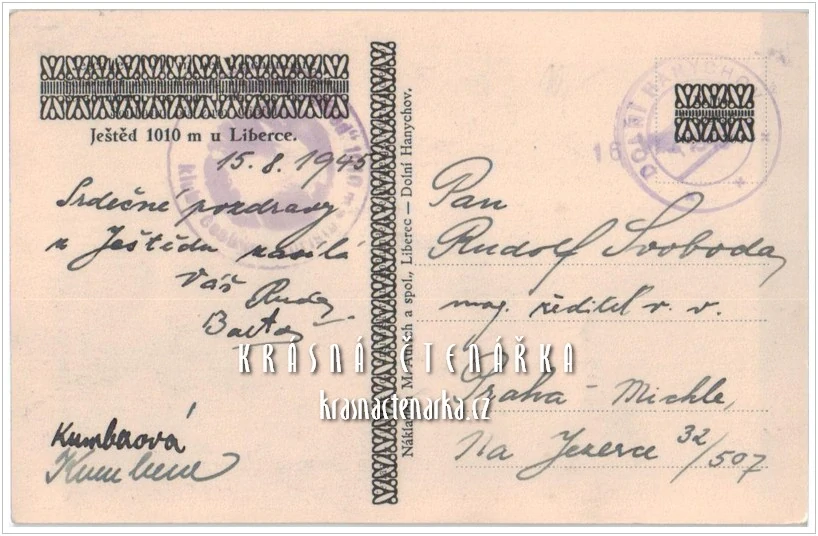 Ještěd 1010 m u Liberce.
15.8.1945
Srdečné pozdravy
z Ještědu zasílá
Váš Ruda
Kumberová
Nákladem M. Aunich a spol., Liberec — Dolní Hanychov.
DOLNÍ HANYCHOV
Pan
Rudolf Svoboda,
mag. ředitel v. v.
Praha - Michle,
Na Jezerce 32/507
KRÁSNÁ ČTENÁŘKA
krasnactenarka.cz